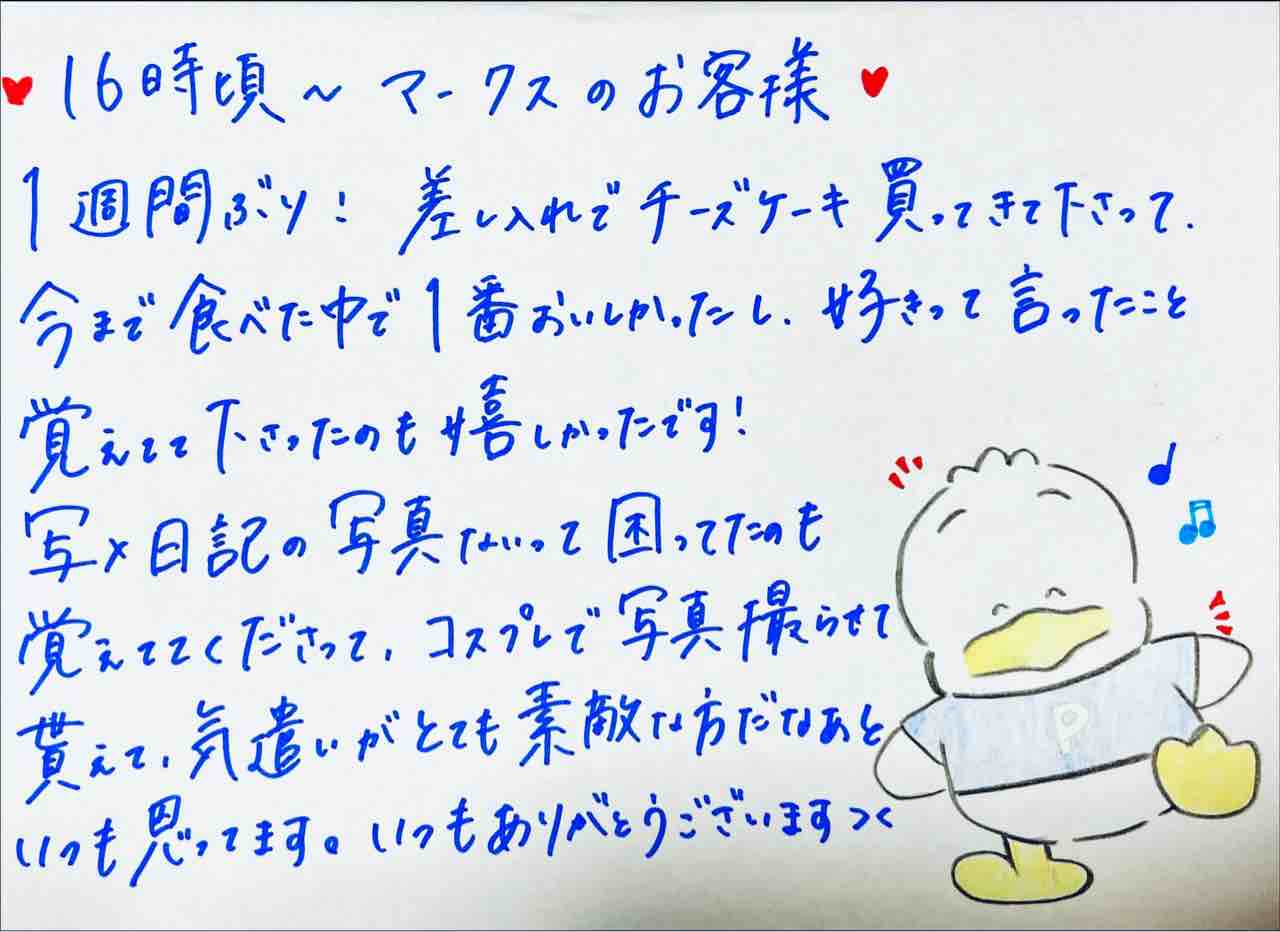 ♥16時頃~マークスのお客様♥
1週間ぶり! 差し入れでチーズケーキ買ってきて下さって、
今まで食べた中で1番おいしかったし、好きって言ったこと
覚えてて下さったのも嬉しかったです!
写メ日記の写真ないって困ってたのも
覚えててくださって、コスプレで写真撮らせて
貰えて、気遣いがとても素敵な方だなあと
いつも思ってます。いつもありがとうございます><
P